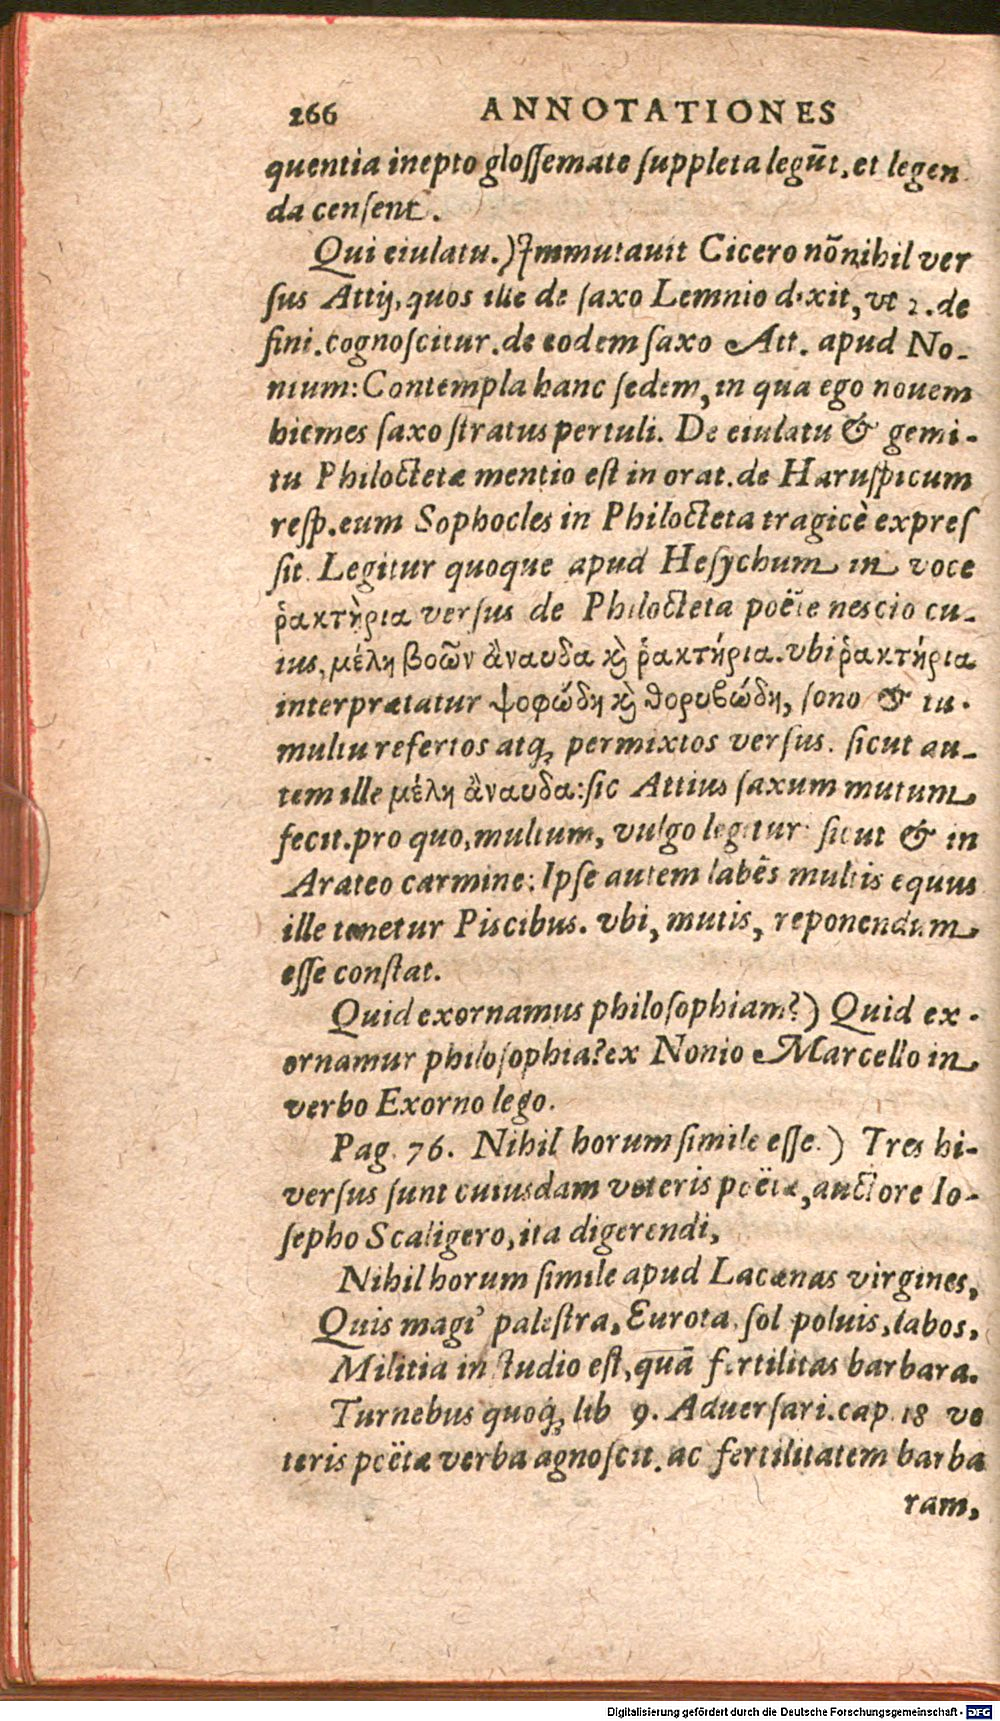 266 ANNOTATIONES
quentia inepto glossemate suppleta legūt, et legen
da censent.
Qui eiulatu.) Immutauit Cicero nōnihil ver
sus Attij, quos ille de saxo Lemnio dixit, vt 2. de
fini. cognoscitur. de eodem saxo Att. apud No-
nium: Contempla hanc sedem, in qua ego nouem
hiemes saxo stratus pertuli. De eiulatu & gemi-
tu Philoctetæ mentio est in orat. de Haruspicum
resp. eum Sophocles in Philocteta tragicè expres
sit. Legitur quoque apud Hesychum in voce
ῥακτὴρια versus de Philocteta poëte nescio cu-
ius, μέλη βοῶν ἄναυδα κὶ ῥακτήρια. vbi ῥακτήρια
interprætatur ψοφώδη κὶ θορυβώδη, sono & tu-
multu refertos atq; permixtos versus. sicut au-
tem ille μέλη ἄναυδα: sic Attius saxum mutum
fecit. pro quo, multum, vulgo legitur: sicut & in
Arateo carmine: Ipse autem labēs multis equus
ille tenetur Piscibus. vbi, mutis, reponendum
esse constat.
Quid exornamus philosophiam?) Quid ex-
ornamur philosophia? ex Nonio Marcello in
verbo Exorno lego.
Pag. 76. Nihil horum simile esse.) Tres hi-
versus sunt cuiusdam veteris poëtæ, auctore Io-
sepho Scaligero, ita digerendi,
Nihil horum simile apud Lacænas virgines,
Quis magi' palestra, Eurota, sol poluis, labos,
Militia in studio est, quā fertilitas barbara.
Turnebus quoq; lib 9. Aduersari. cap. 18 ve
teris poëtæ verba agnoscit. ac fertilitatem barba
ram,
Digitalisierung gefördert durch die Deutsche Forschungsgemeinschaft - DFG